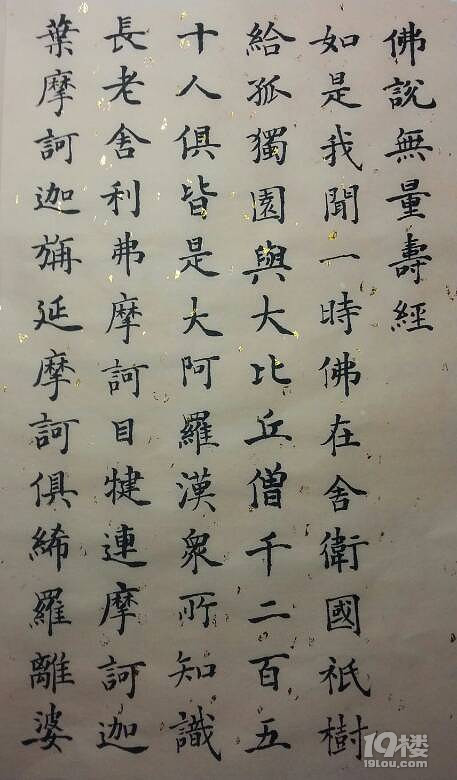 佛說無量壽經
如是我聞一時佛在舍衛國祇樹
給孤獨園與大比丘僧千二百五
十人俱皆是大阿羅漢衆所知識
長老舍利弗摩訶目犍連摩訶迦
葉摩訶迦旃延摩訶俱絺羅離婆
19楼
19lou.com